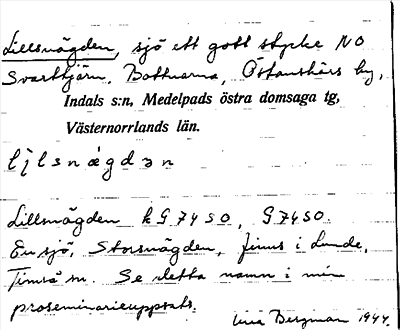 Lillsnägden, sjö ett gott stycke NO
Svarttjärn, Bottnarna, Östanskärs by,
Indals s:n, Medelpads östra domsaga tg,
Västernorrlands län.
Lillsnägden kG7450, G7450.
En sjö, Storsnägden, finns i Lunde,
Timrå sn. Se detta namn i min
proseminarieuppsats.
Bergman 1944.